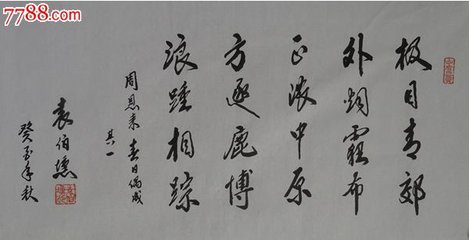 7788.com
极目青郊
外烟霾布
正浓中原
方逐鹿博
浪踵相踪
周恩来春日偶成
其一
袁伯
癸巳年秋